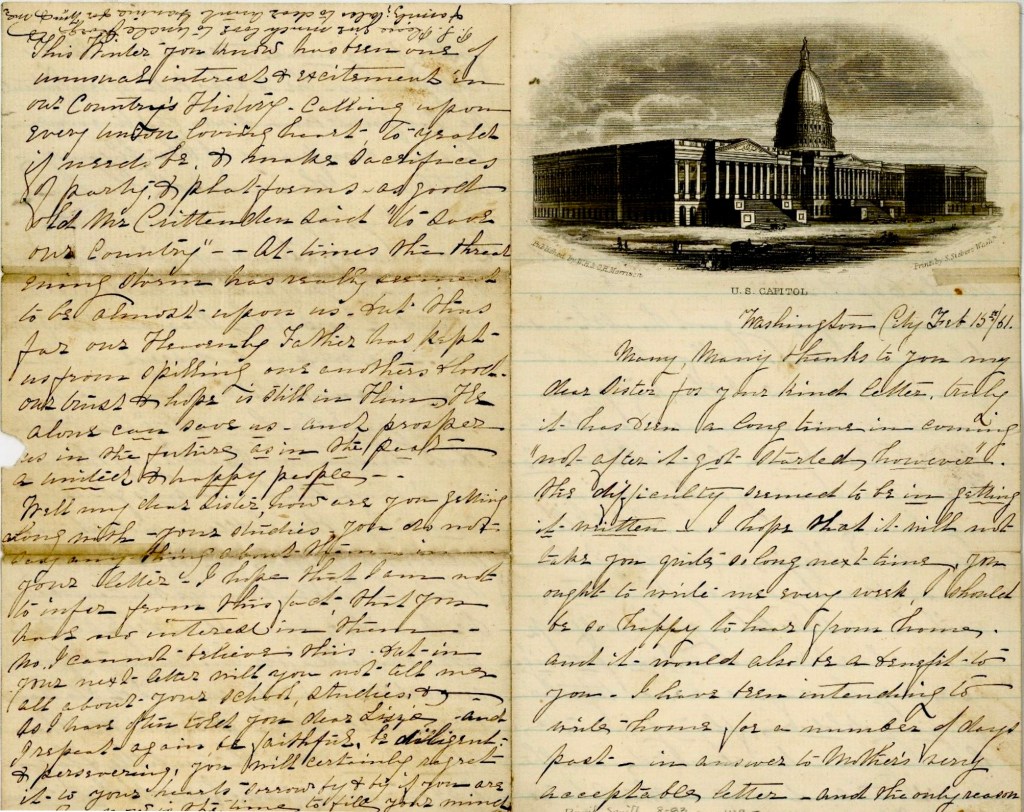 Published by W.H. & O.H. Morrison
Print. by S. Stevens Wash.
U.S. CAPITOL
Washington City Feb 15th/61.
Many, Many thanks to you my
dear Sister for your kind letter, truly
it has been a long time in coming
"not after it got started however".
the difficulty seemed to be in getting
it written. I hope that it will not
take you quite so long next time, you
ought to write me every week, I should
be so happy to hear from home.
and it would also be a benefit to
you - I have been intending to
write home for a number of days
past - in answer to Mother's very
acceptable letter - and the only reason
This Winter you know has been one of
unusual interest & excitement in
our Country's History - calling upon
every union loving heart to yeald
if need be, & make sacrifices
of party, & platforms - as good
old Mr Crittenden said "to save
our Country" - - At times the threat
ening storm has really seemed
to be almost upon us - but thus
far our Heavenly Father has kept
us from spilling one anothers blood -
our trust & hope is still in Him, He
alone can save us - and prosper
us in the future as in the past
a united & happy people - -
Well my dear Sister, how are you getting
along with your studies, you do not
say any thing about them in
your letter - I hope that I am not
to infer from this fact, that you
have no interest in them -
No, I cannot believe this - but in
your next letter will you not tell me
all about your school, studies, &c
As I have often told you dear Lizzie - and
I repeat again be faithful, be dilligent,
& persevering, you will certainly regret
it to your hearts sorrow by & by if you are
now is the time to fill your mind